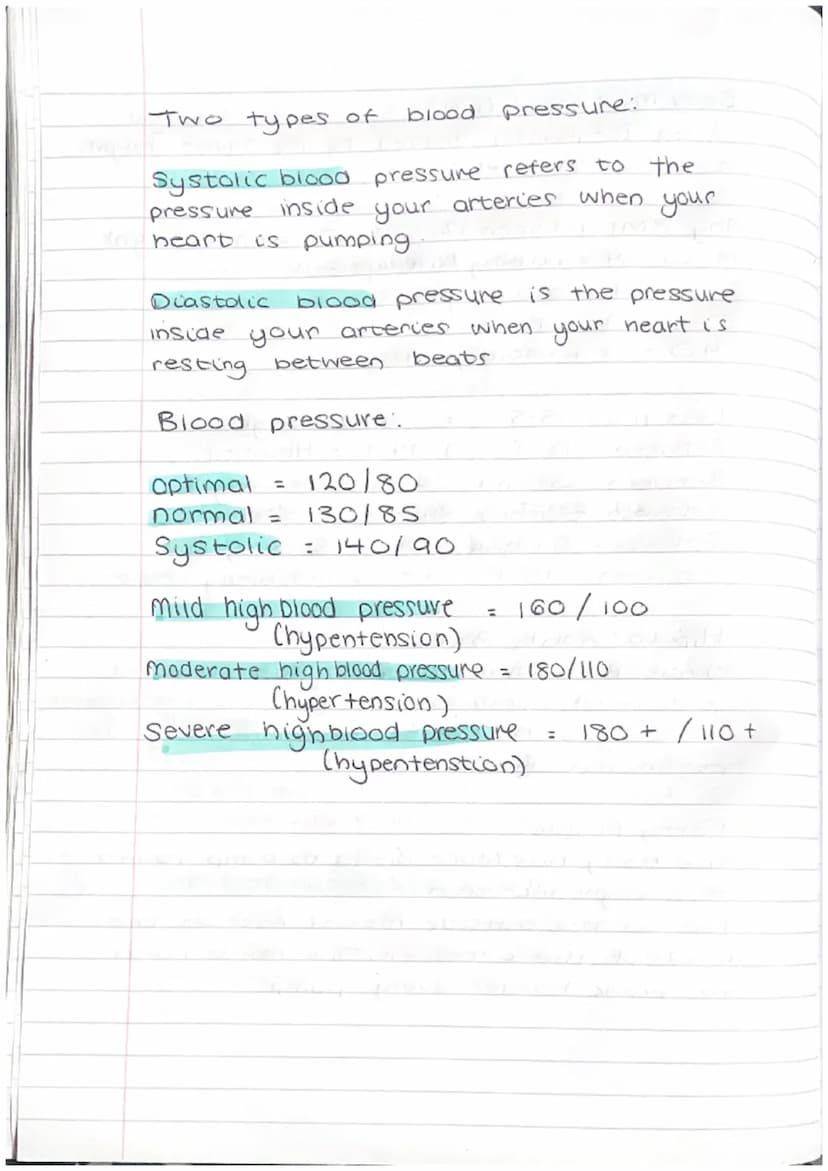 Two types of blood pressure:
Systolic blood pressure refers to the
pressure inside your arteries when your
heart is pumping.
Diastolic blood pressure is the pressure
inside your arteries when your heart is
resting between beats
Blood pressure:
optimal = 120/80
normal = 130/85
Systolic = 140/90
Mild high blood pressure = 160/100
(hypentension)
moderate high blood pressure = 180/110
(hypertension)
Severe high blood pressure = 180+ / 110+
(hypentenstion)